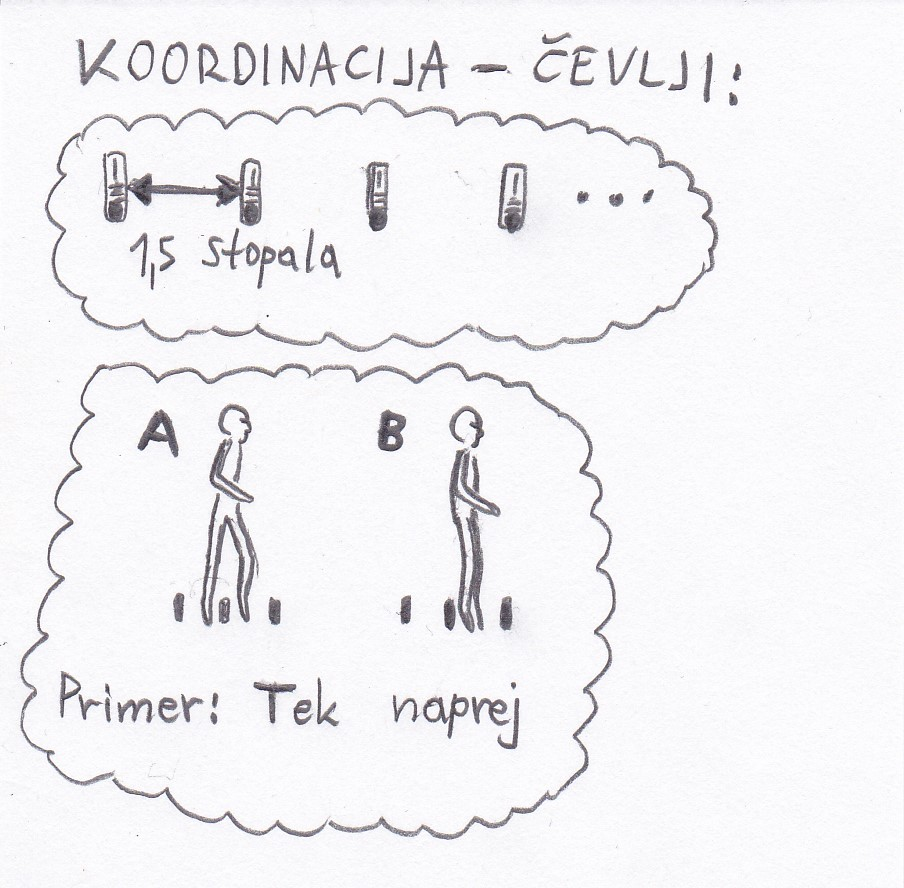 KOORDINACIJA - ČEVLJI:
1,5 stopala
A B
Primer: Tek naprej